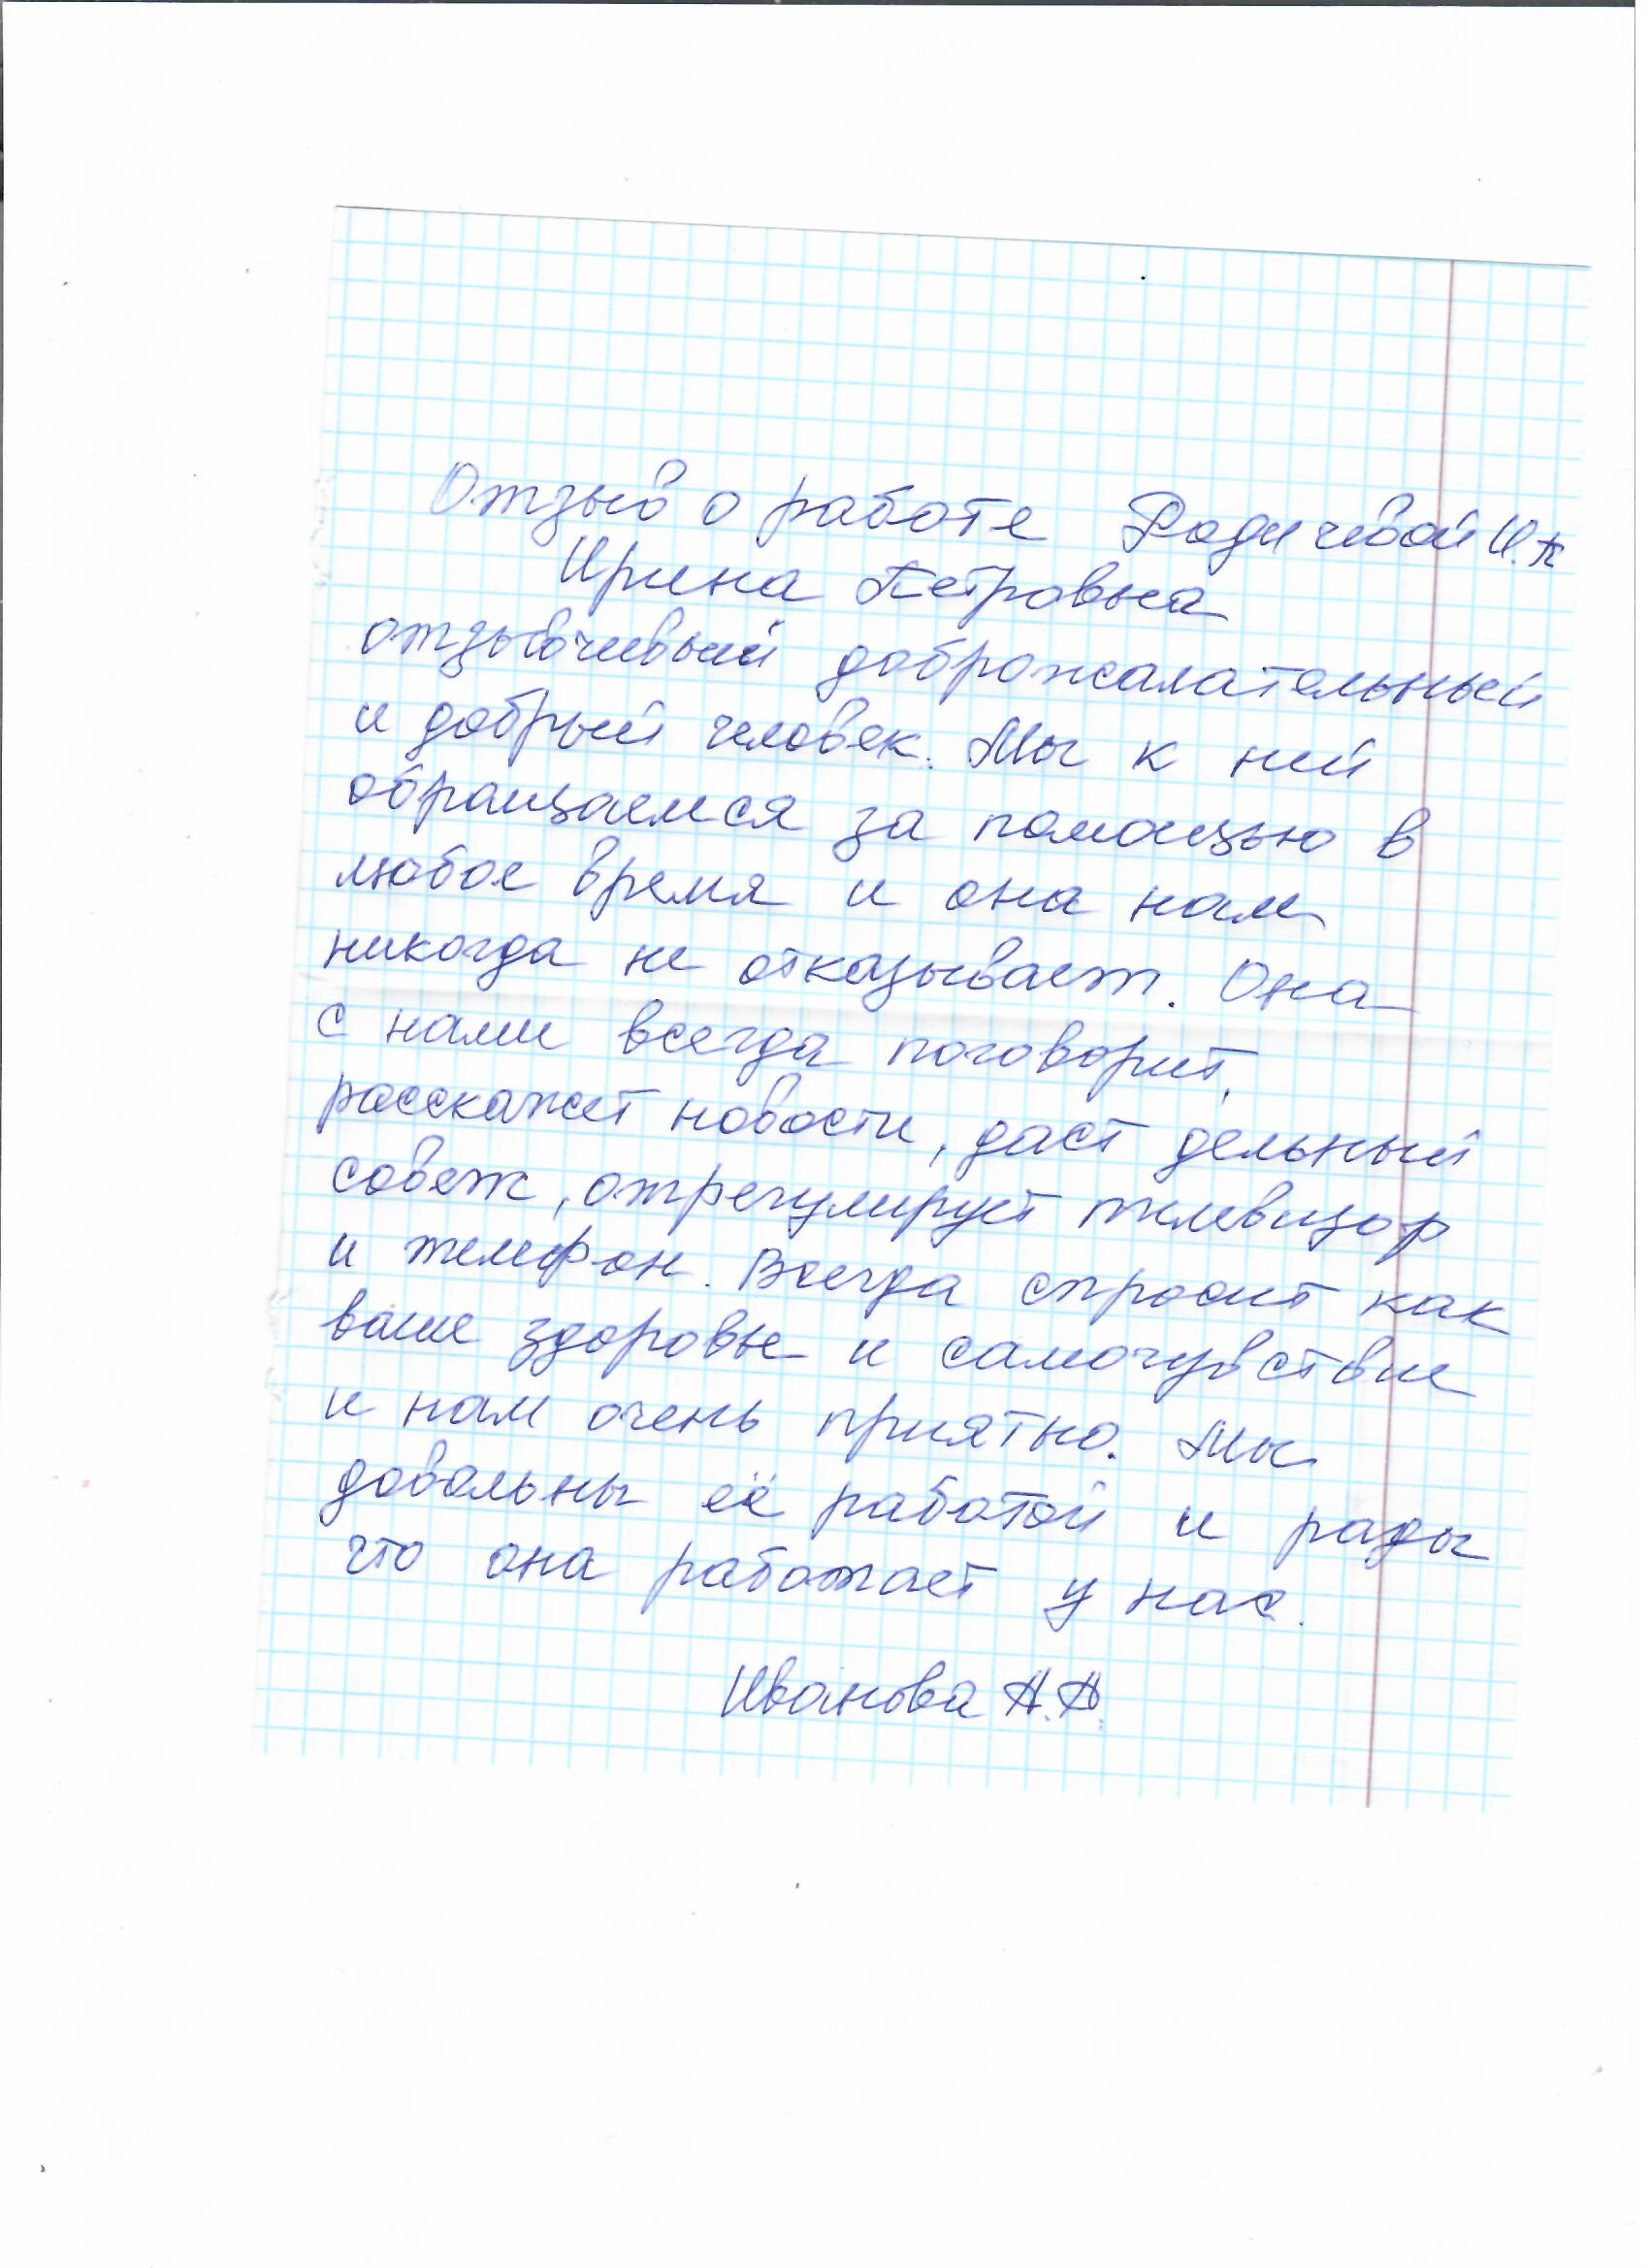 Отзыв о работе Родичевой И.П
Ирина Петровна
отзывчивый доброжалательный
и добрый человек. Мы к ней
обращаемся за помощью в
любое время и она нам
никогда не отказывает. Она
с нами всегда поговорит,
расскажет новости, даст дельный
совет, отрегулирует телевизор
и телефон. Всегда спросит как
ваше здоровье и самочувствие
и нам очень приятно. Мы
довольны её работой и рады
что она работает у нас.
Иванова А.А.